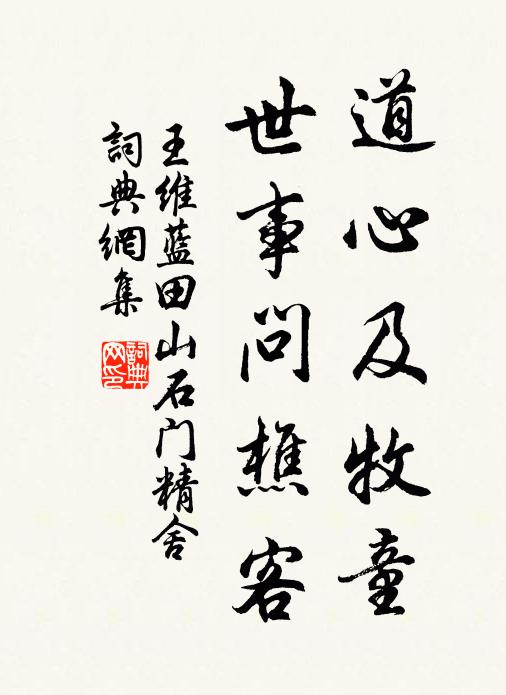 道心及牧童
世事问樵客
王维蓝田山石门精舍
词典网集
词典网印